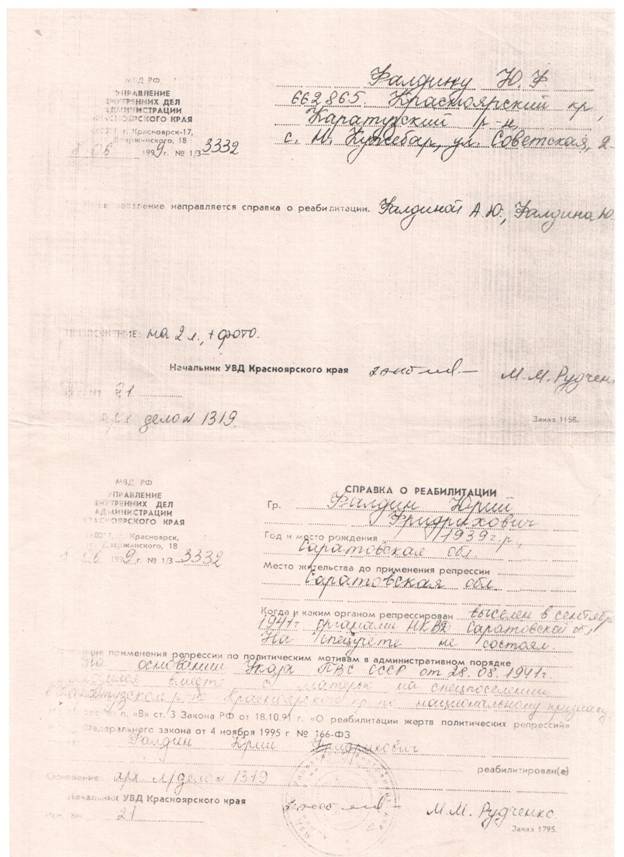 МВД РФ
УПРАВЛЕНИЕ
ВНУТРЕННИХ ДЕЛ
АДМИНИСТРАЦИИ
КРАСНОЯРСКОГО КРАЯ
г. Красноярск-17,
Дзержинского, 18
06 199 9 г. № 1/3 3332
Фалдину Ю. Ф
662865. Красноярский кр,
Каратузский р-н,
с. Н. Кужебар, ул. Советская, 2
направляется справка о реабилитации. Фалдиной А.Ю., Фалдина Ю.
на 2 л., + фото.
Начальник УВД Красноярского края
М.М. Рудченк
21
дело № 1319
Заказ 1158.
МВД РФ
УПРАВЛЕНИЕ
ВНУТРЕННИХ ДЕЛ
АДМИНИСТРАЦИИ
КРАСНОЯРСКОГО КРАЯ
г. Красноярск,
Дзержинского, 18
06 9 г. № 1/3 3332
СПРАВКА О РЕАБИЛИТАЦИИ
Гр. Фалдин Юрий
Фридрихович
Год и место рождения 1939 г.р.,
Саратовская обл.
Место жительства до применения репрессии
Саратовская обл.
Когда и каким органом репрессирован выселен в сентябр
1941г органами НКВД Саратовской обл
На спецучете не состоял.
применения репрессии по политическим мотивам в административном порядке
На основании Указа ПВС СССР от 28.08.1941г.
вместе с матерью на спецпоселении
в Каратузском р-не Красноярского кр по национальному признаку
п. «В» ст. 3 Закона РФ от 18.10.91 г. «О реабилитации жертв политических репрессий»
Федерального закона от 4 ноября 1995 г № 166-ФЗ
Фалдин Юрий Фридрихович
реабилитирован(е)
Основание арх. л/дело № 1319
Начальник УВД Красноярского края
М.М. Рудченко.
21
Заказ 1795.